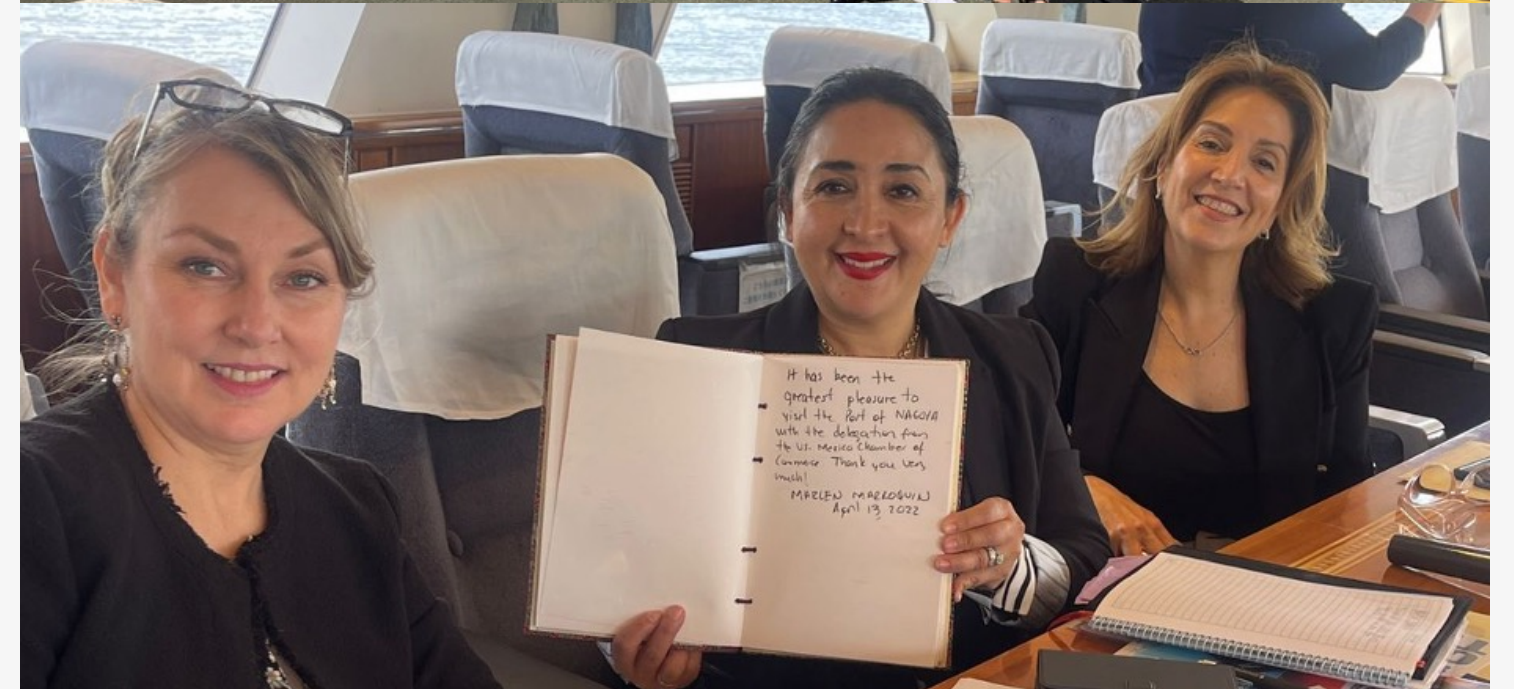 It has been the
greatest pleasure to
visit the Port of NAGOYA
with the delegation from
the US. Mexico Chamber of
Commerce Thank you very
much!
MARLEN MARROQUIN
April 13, 2022